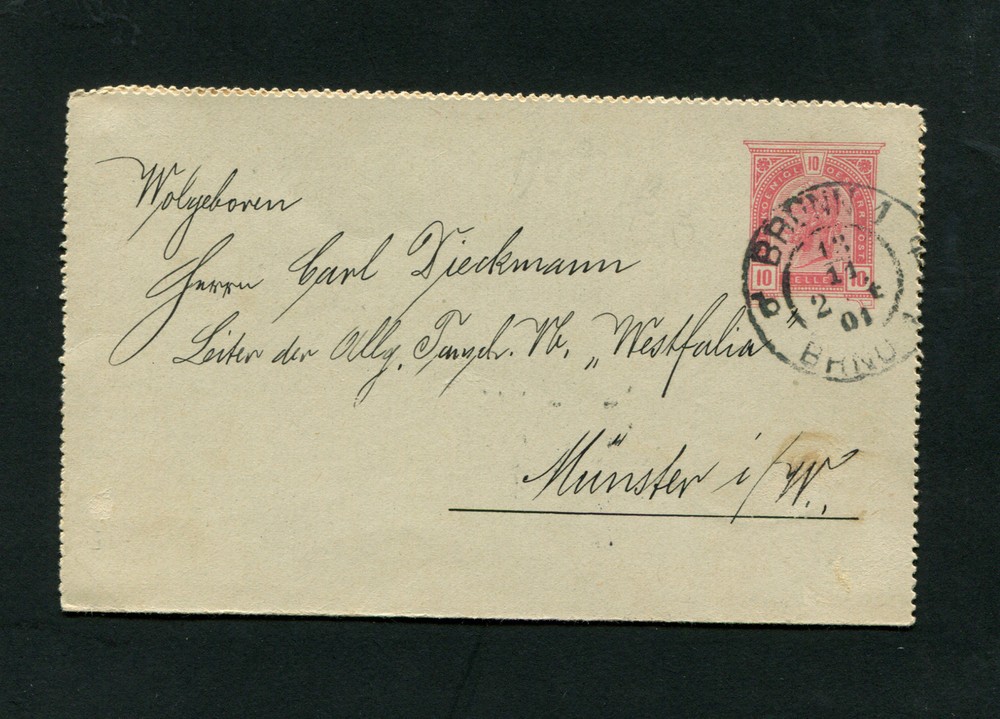 Wolgeboren
Herrn Carl Dieckmann
Leiter der Allg. Tausch. V. „Westfalia"
Münster i/W.
10
10 HELLER 10
BRÜNN 1
12
11
2
01
BRNO